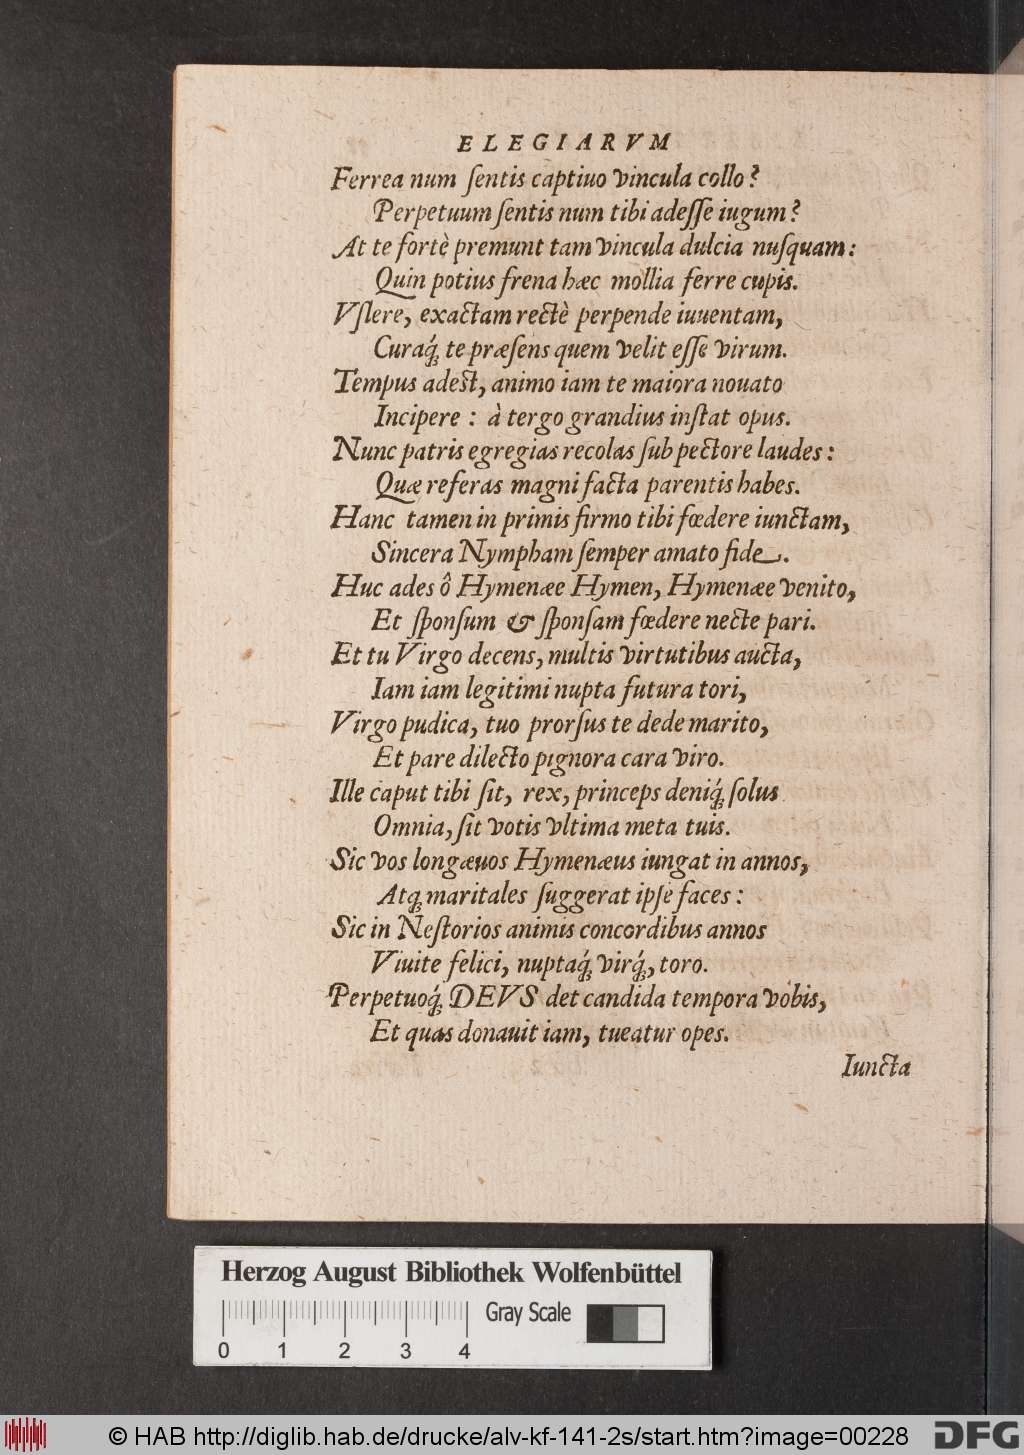 ELEGIARVM
Ferrea num ſentis captiuo vincula collo?
Perpetuum ſentis num tibi adeſſe iugum?
At te fortè premunt tam vincula dulcia nuſquam:
Quin potius frena hæc mollia ferre cupis.
Vſlere, exactam rectè perpende iuuentam,
Curaq́ꝫ te præſens quem velit eſſe virum.
Tempus adest, animo iam te maiora nouato
Incipere: à tergo grandius inſtat opus.
Nunc patris egregias recolas ſub pectore laudes:
Quæ referas magni facta parentis habes.
Hanc tamen in primis firmo tibi fœdere iunctam,
Sincera Nympham ſemper amato fide.
Huc ades ô Hymenæe Hymen, Hymenæe venito,
Et ſponſum & ſponſam fœdere necte pari.
Et tu Virgo decens, multis virtutibus aucta,
Iam iam legitimi nupta futura tori,
Virgo pudica, tuo prorſus te dede marito,
Et pare dilecto pignora cara viro.
Ille caput tibi ſit, rex, princeps deniq́ꝫ ſolus
Omnia, ſit votis vltima meta tuis.
Sic vos longæuos Hymenæus iungat in annos,
Atqꝫ maritales ſuggerat ipſe faces:
Sic in Neſtorios animis concordibus annos
Viuite felici, nuptaq́ꝫ virq́ꝫ, toro.
Perpetuoq́ꝫ DEVS det candida tempora vobis,
Et quas donauit iam, tueatur opes.
Iuncta
Herzog August Bibliothek Wolfenbüttel
Gray Scale
0 1 2 3 4
© HAB http://diglib.hab.de/drucke/alv-kf-141-2s/start.htm?image=00228
DFG